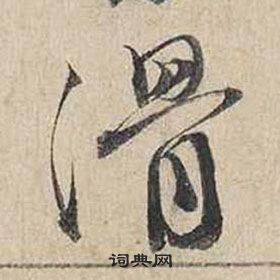 滑
词典网